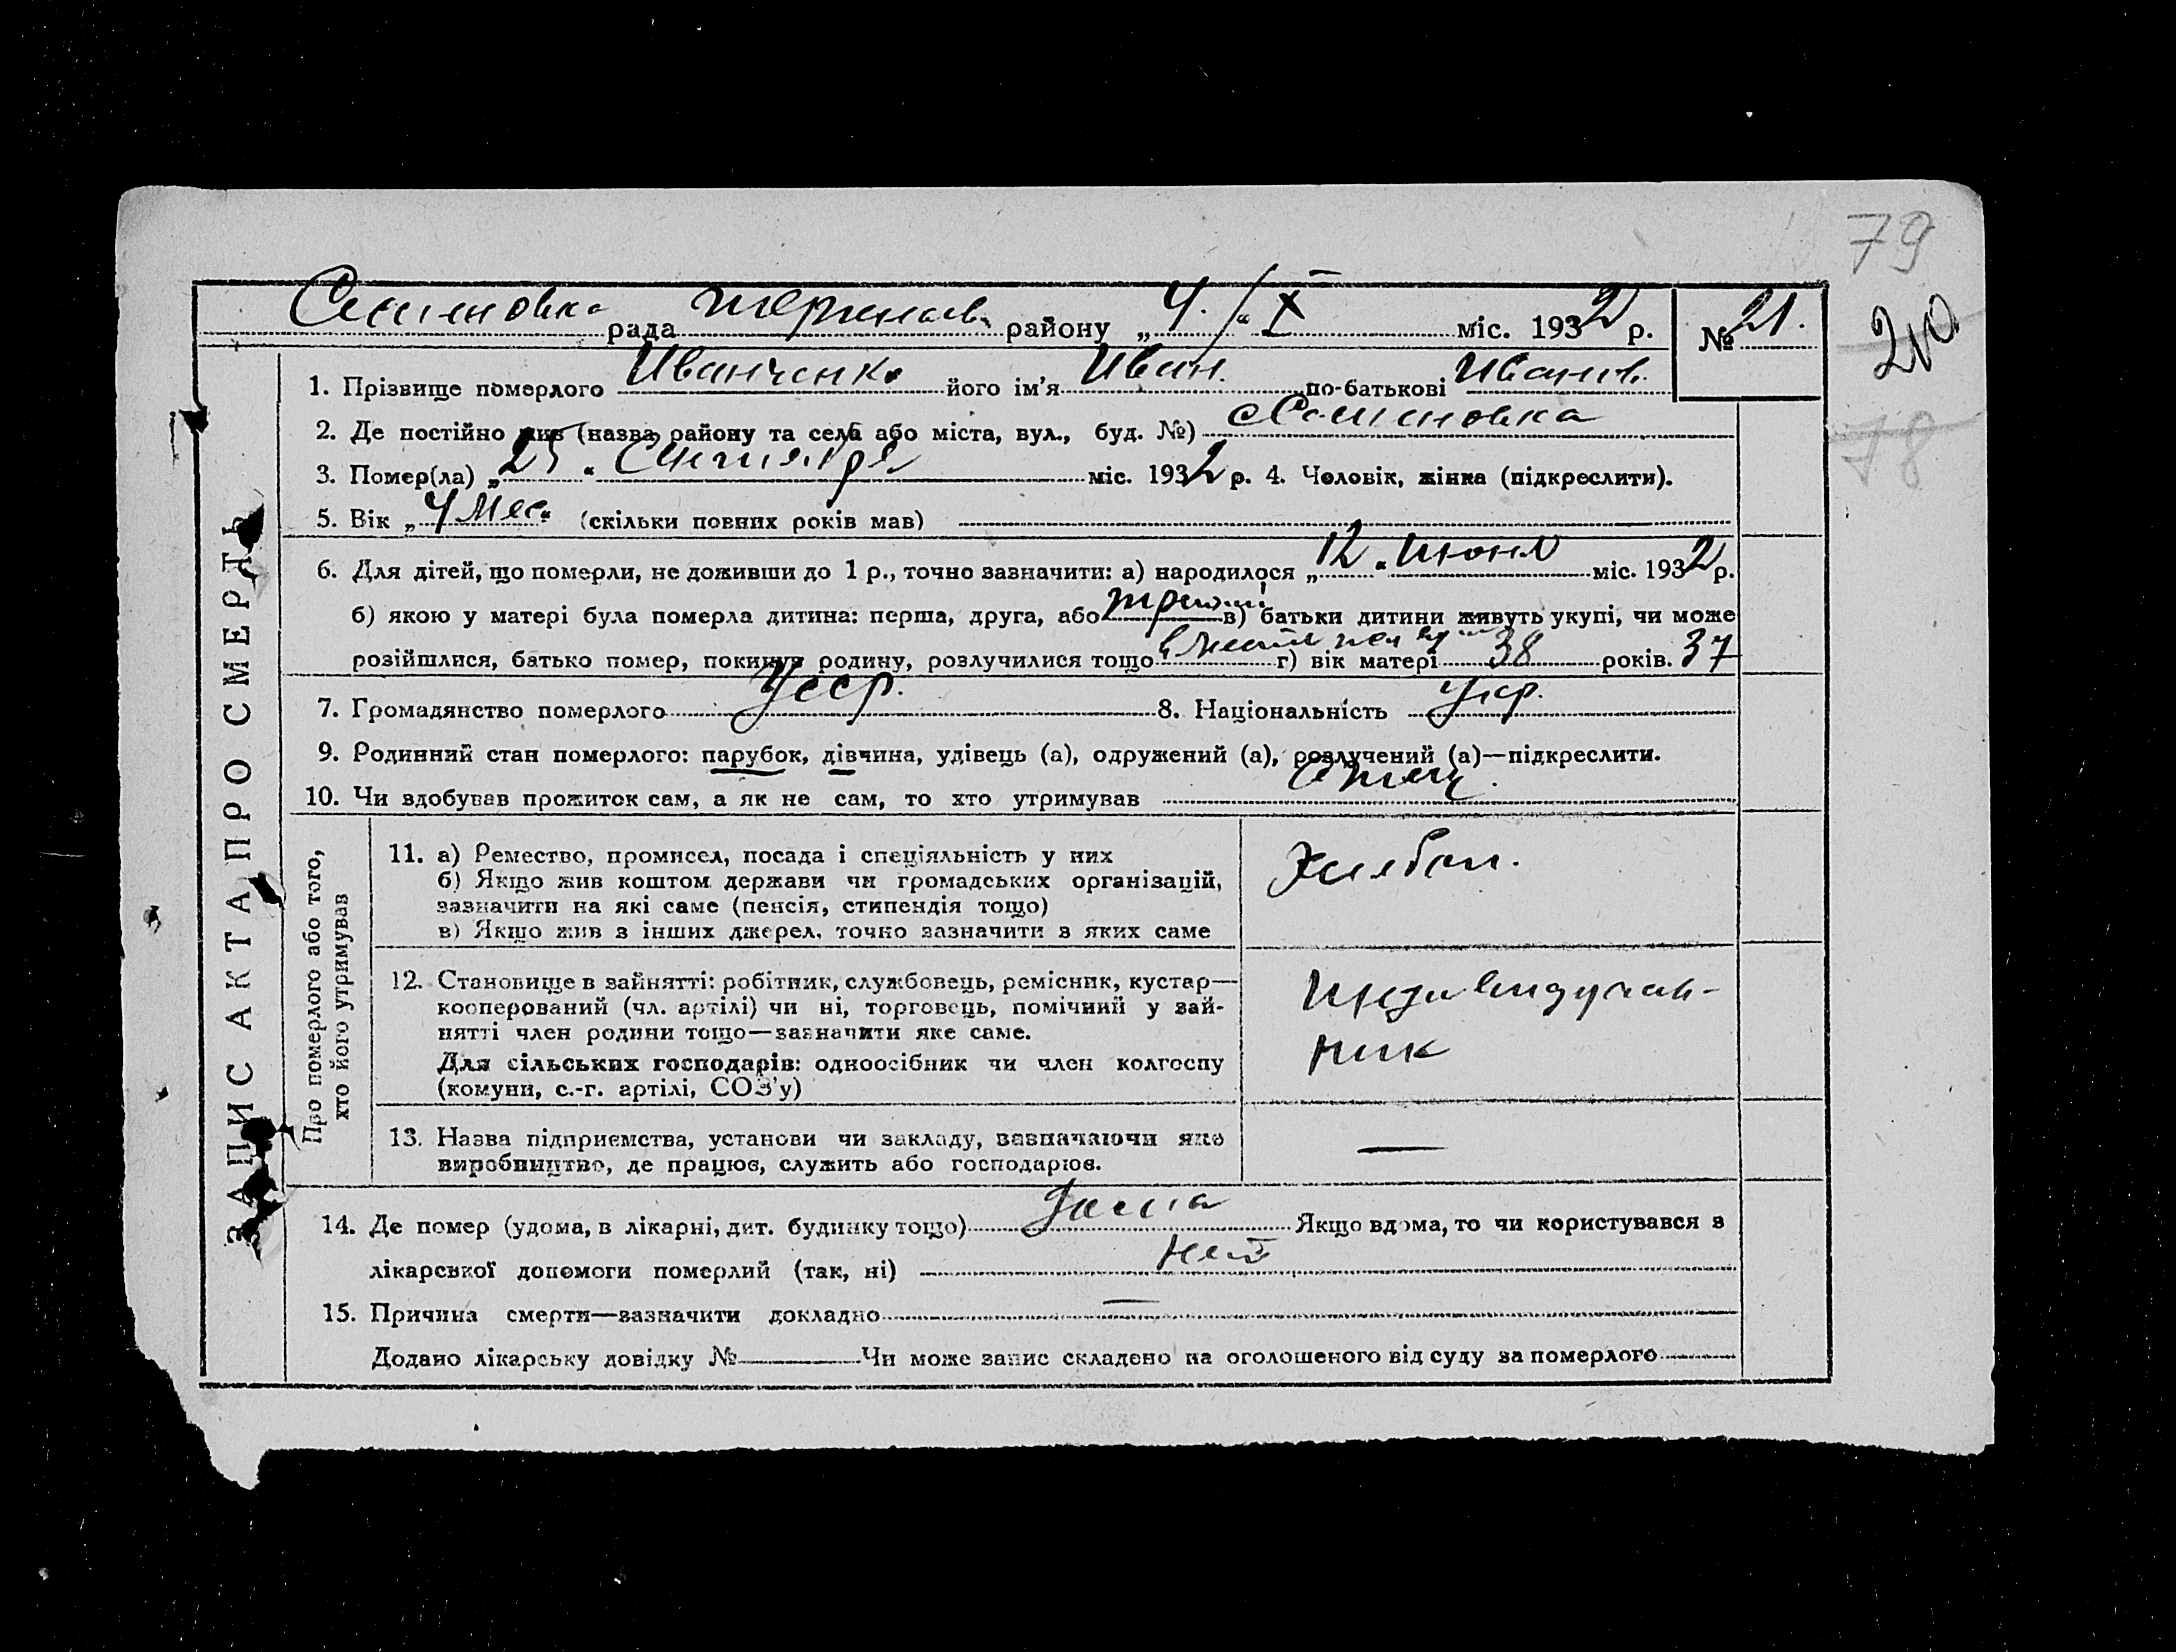 79
Семеновка рада района „4.“ X міс. 1932 р. № 21.
210
1. Прізвище померлого Иванченко його ім'я Иван. по-батькові Иванов.
2. Де постійно жив (назва району та села або міста, вул., буд. №) с Семеновка
78
3. Помер(ла) „25“ Сентября міс. 1932 р. 4. Чоловік, жінка (підкреслити).
5. Вік „4 Мес.“ (скільки повних років мав)
6. Для дітей, що померли, не доживши до 1 р., точно зазначити: а) народилося „12“ Июня міс. 1932 р.
б) якою у матері була померла дитина: перша, друга, або третий в) батьки дитини живуть укупі, чи може
розійшлися, батько помер, покинув родину, розлучилися тощо г) вік матері 38 років. 37
7. Громадянство померлого Усср. 8. Національність Укр.
9. Родинний стан померлого: парубок, дівчина, удівець (а), одружений (а), розлучений (а)—підкреслити.
10. Чи здобував прожиток сам, а як не сам, то хто утримував Отец.
ЗАПИС АКТА ПРО СМЕРТЬ
Про померлого або того,
хто його утримував
11. а) Ремество, промисел, посада і спеціяльність у них
б) Якщо жив коштом держави чи громадських організацій,
зазначити на які саме (пенсія, стипендія тощо)
в) Якщо жив з інших джерел, точно зазначити з яких саме
Хлебоп.
12. Становище в зайнятті: робітник, службовець, ремісник, кустар—
кооперований (чл. артілі) чи ні, торговець, помічний у зай-
нятті член родини тощо—зазначити яке саме.
Для сільських господарів: одноосібник чи член колгоспу
(комуни, с.-г. артілі, СОЗ'у)
Индивидуал-
ник
13. Назва підприємства, установи чи закладу, зазначаючи яке
виробництво, де працює, служить або господарює.
—
14. Де помер (удома, в лікарні, дит. будинку тощо) Дома Якщо вдома, то чи користувався з
лікарської допомоги померлий (так, ні) Нет
15. Причина смерти—зазначити докладно —
Додано лікарську довідку № Чи може запис складено на оголошеного від суду за померлого